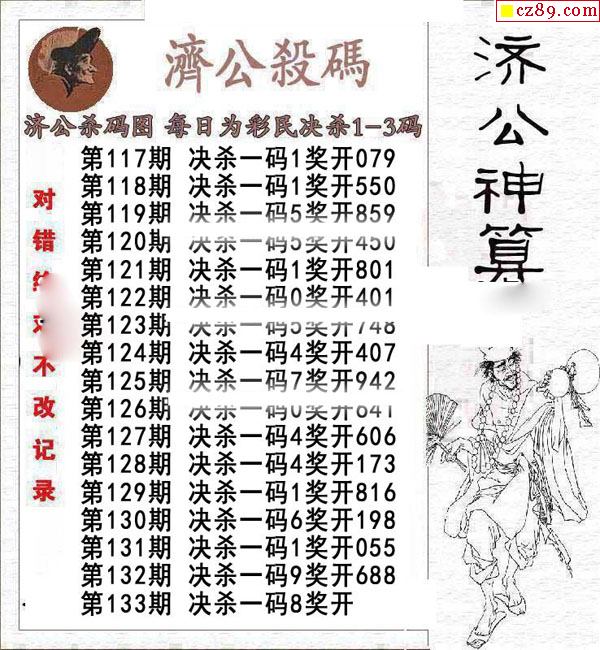 cz89.com
濟公殺碼
济公杀码图 每日为彩民决杀1-3码
第117期 决杀一码1奖开079
第118期 决杀一码1奖开550
第119期 决杀一码5奖开859
第120期 决杀一码5奖开450
第121期 决杀一码1奖开801
第122期 决杀一码0奖开401
第123期 决杀一码5奖开748
第124期 决杀一码4奖开407
第125期 决杀一码7奖开942
第126期 决杀一码0奖开641
第127期 决杀一码4奖开606
第128期 决杀一码4奖开173
第129期 决杀一码1奖开816
第130期 决杀一码6奖开198
第131期 决杀一码1奖开055
第132期 决杀一码9奖开688
第133期 决杀一码8奖开
对错
不改记录
济公神算